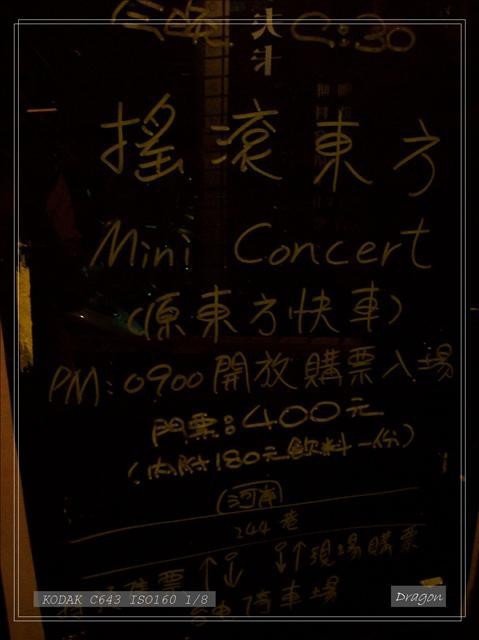 今晚 9:30
搖滾東方
Mini Concert
(原東方快車)
PM:0900開放購票入場
門票:400元
(內附180元飲料一份)
河岸
244巷
現場購票
停車場
KODAK C643 ISO160 1/8
Dragon